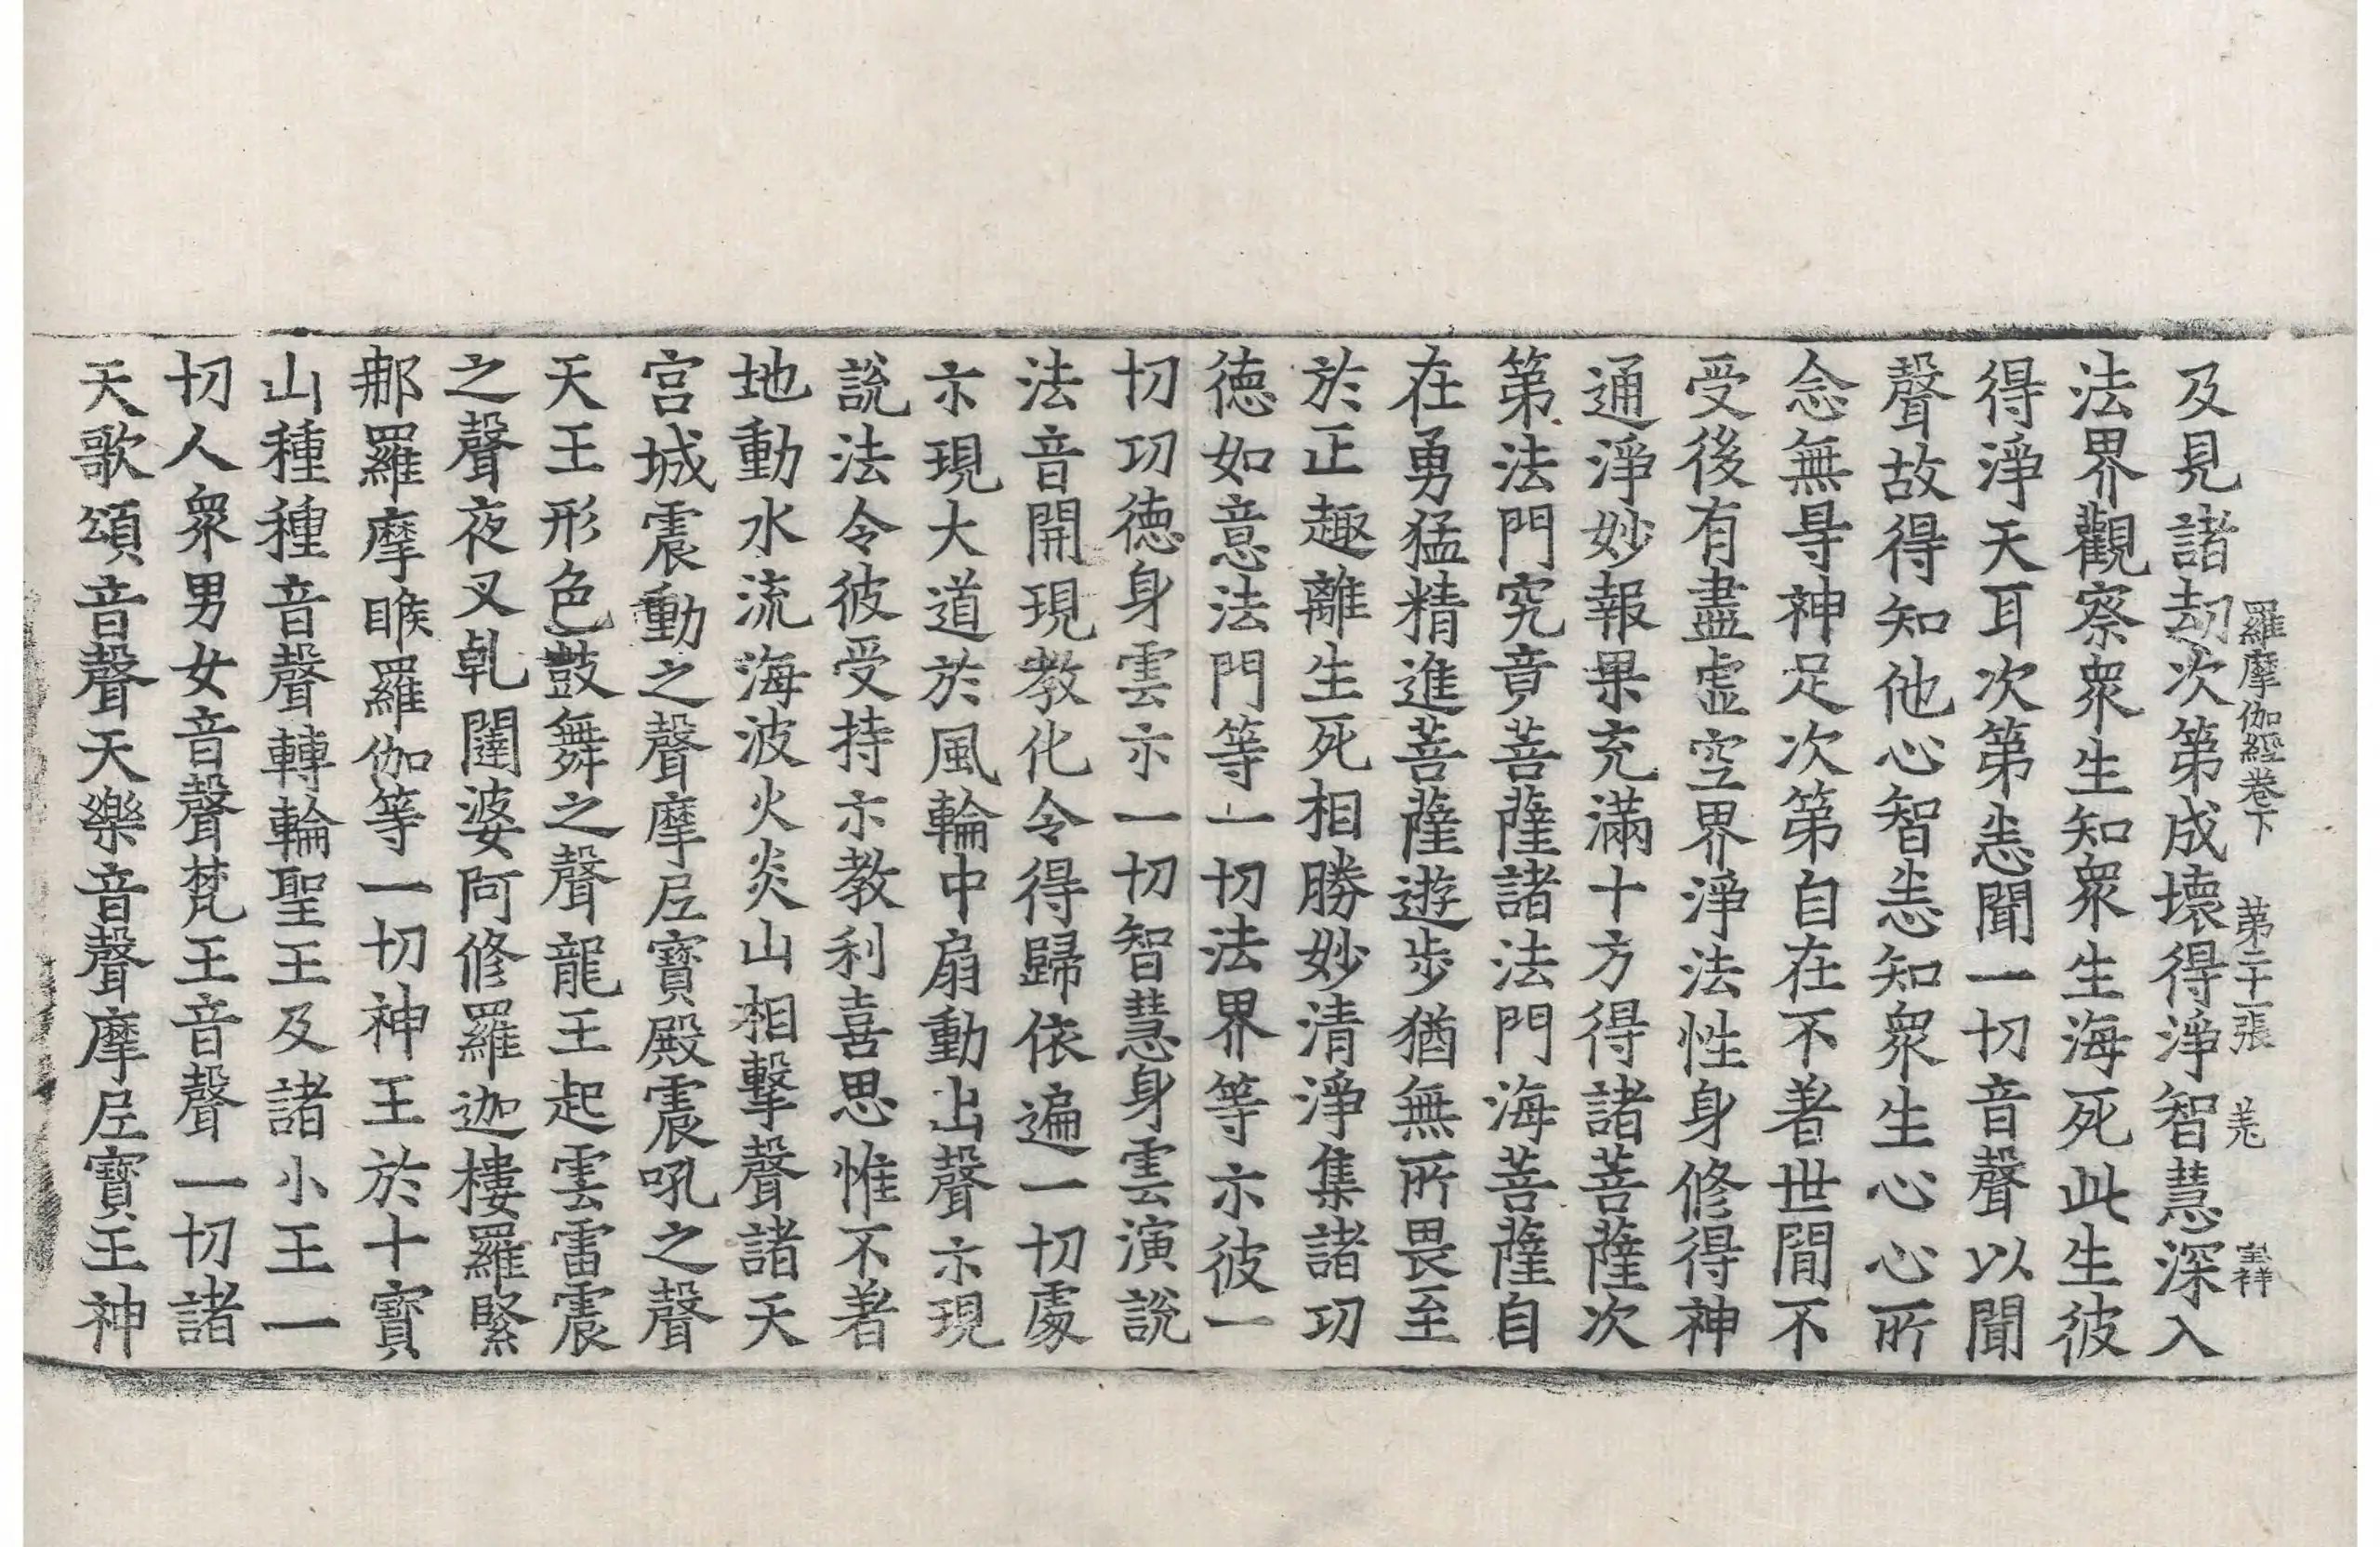 羅摩伽經卷下 第二十二張 羌 宝祥
及見諸劫次第成壞得淨智慧深入
法界觀察衆生知衆生生海死此生彼
得淨天耳次第悉聞一切音聲以聞
聲故得知他心智悉知衆生心心所
念無㝵神足次第自在不著世間不
受後有盡虛空界淨法性身修得神
通淨妙報果充滿十方得諸菩薩次
第法門究竟菩薩諸法門海菩薩自
在勇猛精進菩薩遊步猶無所畏至
於正趣離生死相勝妙清淨集諸功
德如意法門等一一切法界等亦彼一
切功德身雲亦一切智慧身雲演說
法音開現教化令得歸依遍一切處
亦現大道於風輪中扇動出聲亦現
說法令彼受持亦教利喜思惟不著
地動水流海波火炎山相擊聲諸天
宮城震動之聲摩𡰱寶殿震吼之聲
天王形色鼓舞之聲龍王起雲雷震
之聲夜叉乹闥婆阿修羅迦樓羅緊
那羅摩睺羅伽等一切神王於十寶
山種種音聲轉輪聖王及諸小王一
切人衆男女音聲梵王音聲一切諸
天歌頌音聲天樂音聲摩𡰱寶王神